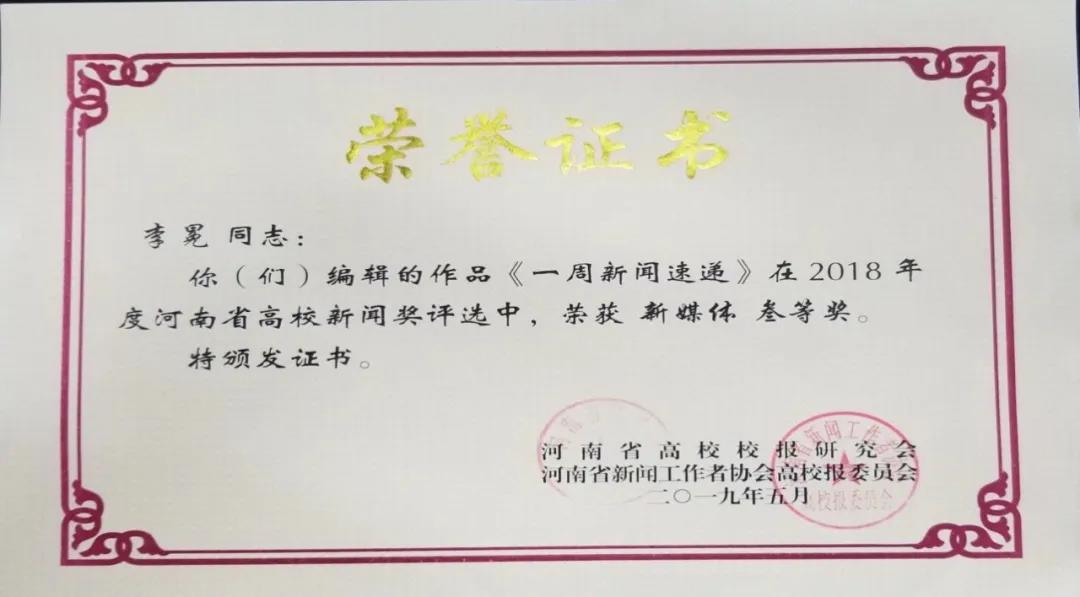 荣誉证书
李冕 同志：
你（们）编辑的作品《一周新闻速递》在2018年
度河南省高校新闻奖评选中，荣获 新媒体 叁等奖。
特颁发证书。
河南省高校校报研究会
河南省新闻工作者协会高校报委员会
二〇一九年五月
高校报委员会